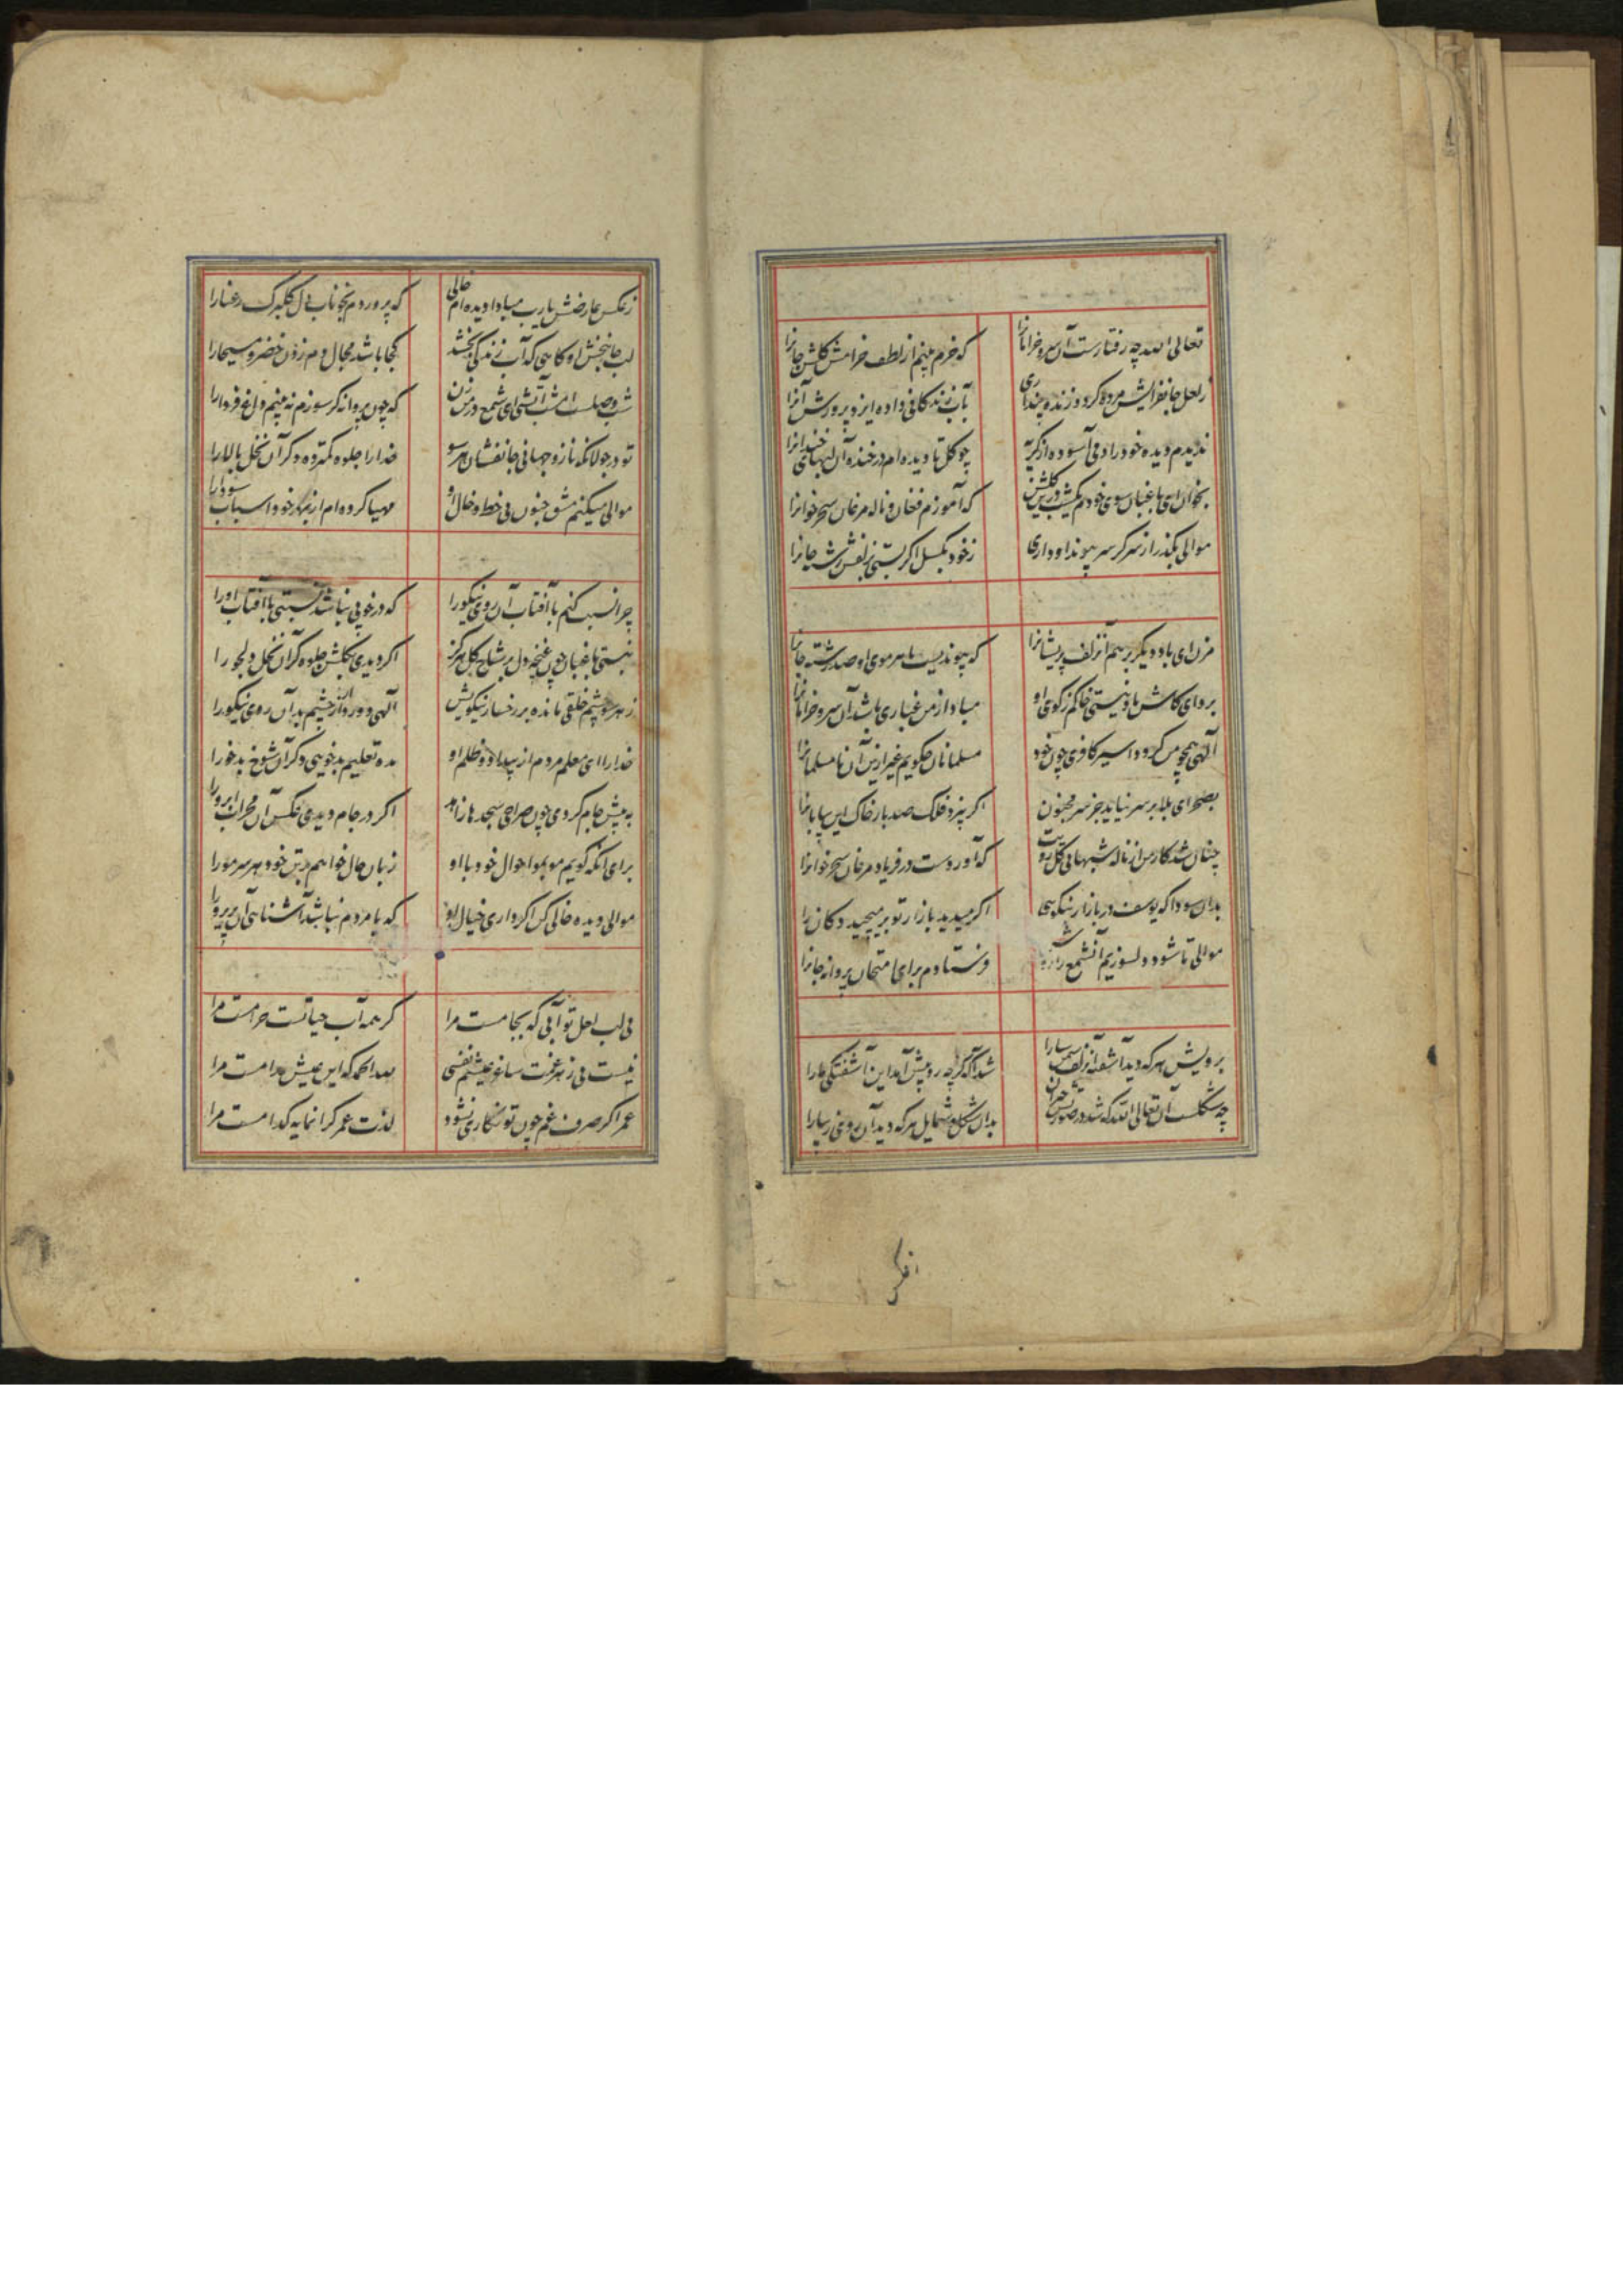 تعالی الله چه رفتارست آن سرو خرامانرا که خرم بینم از لطف خرامش گلشن جانرا
ز لعل جانفزایش مرده کردد زنده پنداری بآب زندکانی داده ایزد پرورش آنرا
ندیدم دیده خود را دمی آسوده از کریه چو کل تا دیده ام در خنده آن لبهای خندانرا
بخوان ای باغبان سوی خودم یکشب درین کلشن که آموزم فغان و ناله مرغان سحرخوانرا
موالی بکذر از سر کر سر پیوند او داری ز خود بکسل اکر بستی بزلفش رشته جانرا
مزن ای باد دیکر بر هم آنزلف پریشانرا که پیوندیست با هر موی او صد رشته جانرا
برو ای کاش باد نیستی خاکم ز کوی او مبادا از من غباری باشد آن سرو خرامانرا
آلهی همچو من کردد اسیر کافری چون خود مسلمانان چکویم غیر ازین آن نامسلمانرا
بصحرای بلا بر سر نیاید جز سر مجنون اکر بیزد فلک صد بار خاک این بیابانرا
چنان شد کار من از ناله شبها بی کل رویت که آوردست در فریاد مرغان سحرخوانرا
بدان سودا که یوسف در بازار نیکویی اکر میدید بازار تو بر میچید دکان را
موالی تا شود دلسوزیم آنشمع را روشن فرستادم برای امتحان پروانه جانرا
برویش هر که دید آشفته آنزلف سمن سارا شد آکه کز چه رو پیش آمد این آشفتکی ما را
چه شکلست آن تعالی الله که شد در صورتش حیران بدان شکل و شمایل هر که دید آن روی زیبا را
افکن
ز عکس عارضش یارب مبادا دیده ام خالی که پروردم بخوناب دل آن کلبرک رعنا را
لب جانبخش او کاهی که آب زندکی بخشد کجا باشد مجال دم زدن خضر و مسیحا را
شب وصلست امشب آتشی ای شمع در من زن که چون پروانه کر سوزم نه بینم داغ فردا را
تو در جولانکه ناز و جهانی جانفشان هر سو خدا را جلوه کمتر ده دکر آن نخل بالا را
موالی میکنم مشق جنون بی خط و خال او مهیا کرده ام از بهر خود اسباب سودا را
چرا نسبت کنم با آفتاب آن روی نیکو را که در خوبی نباشد نسبتی با آفتاب او را
نبستی باغبان چون غنچه دل بر شاخ کل هرکز اکر دیدی بکلشن جلوه کر آن نخل دلجو را
ز هر سو چشم خلقی مانده بر رخسار نیکویش آلهی دور دار از چشم بد آن روی نیکو را
خدا را ای معلم مردم از بیداد و ظلم او مده تعلیم بدخویی دکر آن شوخ بدخو را
به پیش جام کردی چون صراحی سجده ها زاهد اکر در جام دیدی عکس آن محراب ابرو را
برای آنکه کویم موبمو احوال خود با او زبان حال خواهم در تن خود هر سر مو را
موالی دیده خالی کن اکر داری خیال او که با مردم نباشد آشنایی آن پریرو را
بی لب لعل تو آبی که بجامست مرا کر همه آب حیاتست حرامست مرا
نیست بی زهر غمت ساغر عیشم نفسی لله الحمد که این عیش مدامست مرا
عمر اکر صرف غم چون تو نکاری نشود لذت عمر کرانمایه کدامست مرا